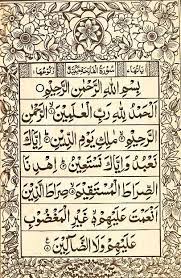 سُوْرَةُ الْفَاتِحَةِ مَكِّيَّةٌ
بِسْمِ اللهِ الرَّحْمٰنِ الرَّحِيْمِ
اَلْحَمْدُ لِلّٰهِ رَبِّ الْعٰلَمِيْنَ ۙ الرَّحْمٰنِ
الرَّحِيْمِ ۙ مٰلِكِ يَوْمِ الدِّيْنِ ؕ اِيَّاكَ
نَعْبُدُ وَاِيَّاكَ نَسْتَعِيْنُ ؕ اِهْدِنَا
الصِّرَاطَ الْمُسْتَقِيْمَ ۙ صِرَاطَ الَّذِيْنَ
اَنْعَمْتَ عَلَيْهِمْ ۙ غَيْرِ الْمَغْضُوْبِ
عَلَيْهِمْ وَلَا الضَّآلِّيْنَ